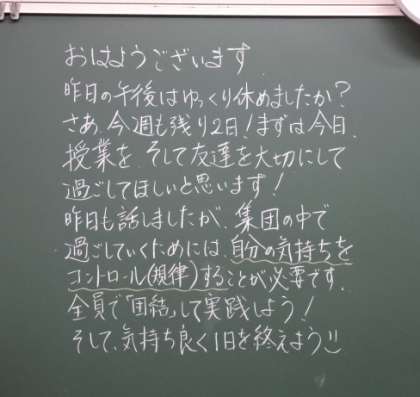 おはようございます.
昨日の午後はゆっくり休めましたか?
さあ、今週も残り2日!まずは今日、
授業を、そして友達を大切にして
過ごしてほしいと思います!
昨日も話しましたが、集団の中で
過ごしていくためには、自分の気持ちを
コントロール(規律)することが必要です.
全員で「団結」して実践しよう!
そして、気持ち良く1日を終えよう!!